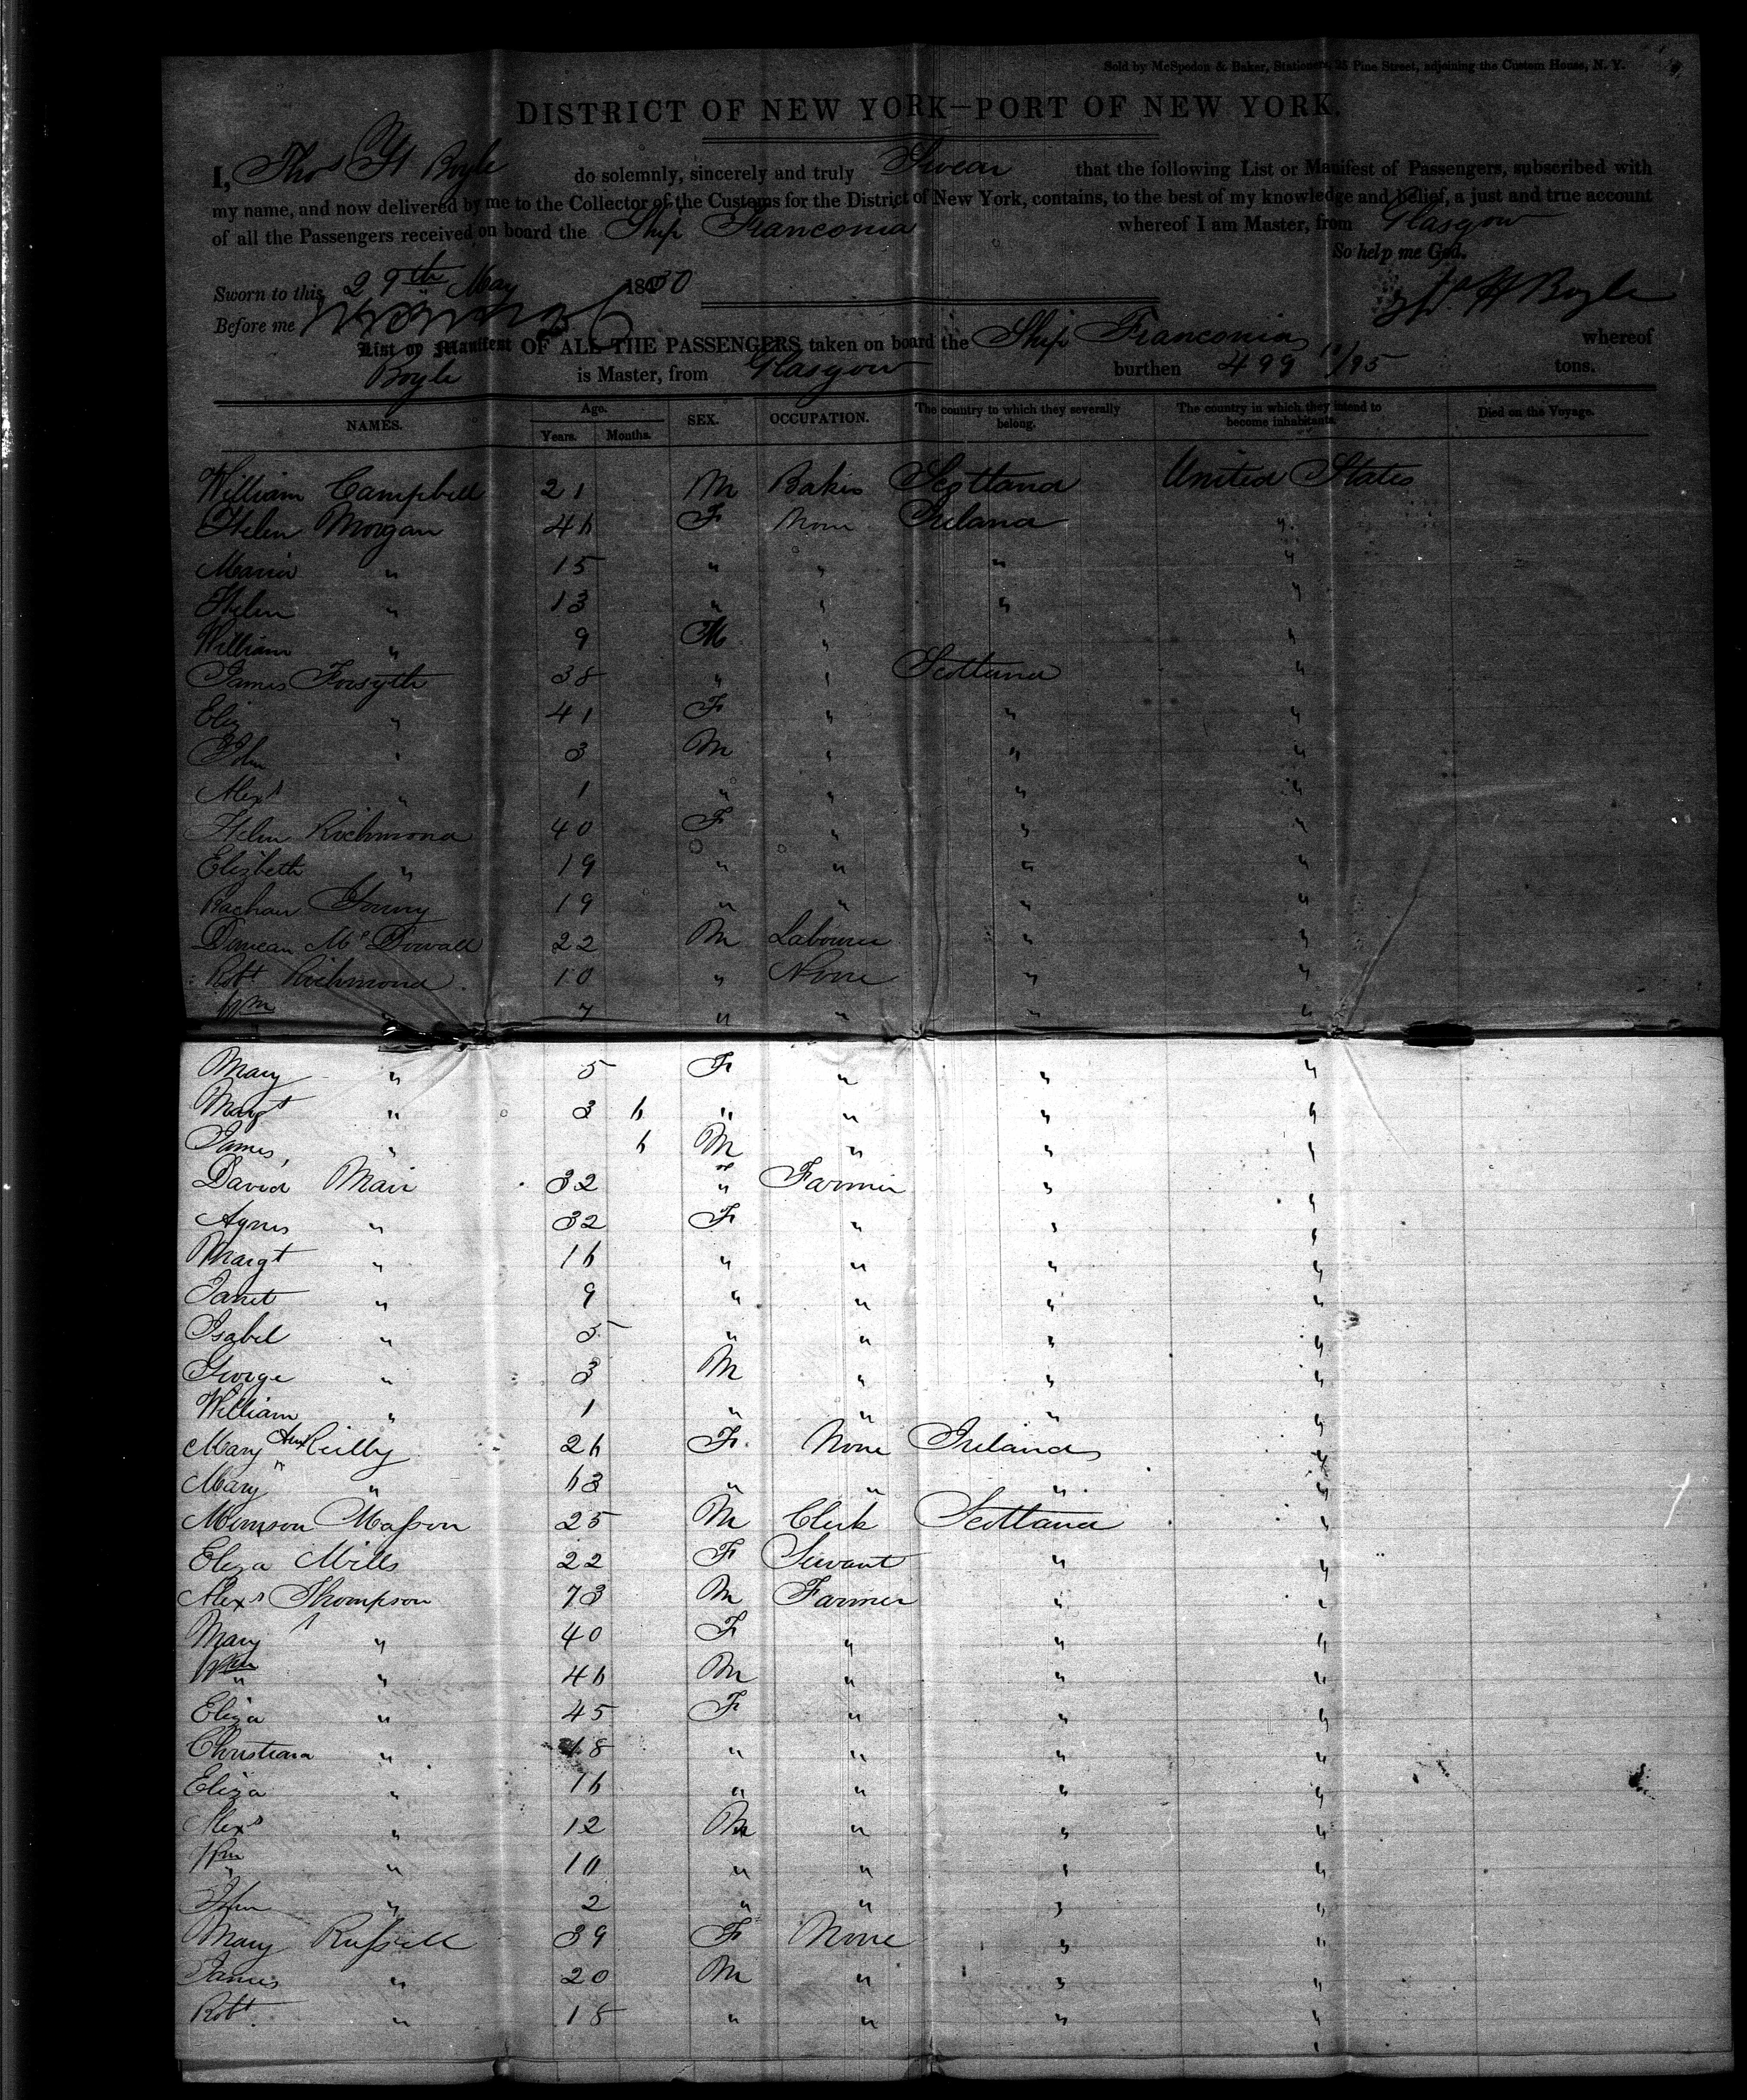 Sold by McSpedon & Baker, Stationers, 25 Pine Street, adjoining the Custom House, N. Y.
DISTRICT OF NEW YORK—PORT OF NEW YORK.
I, Thos H Boyle do solemnly, sincerely and truly Swear that the following List or Manifest of Passengers, subscribed with
my name, and now delivered by me to the Collector of the Customs for the District of New York, contains, to the best of my knowledge and belief, a just and true account
of all the Passengers received on board the Ship Franconia whereof I am Master, from Glasgow
So help me God.
Sworn to this 29th May 1850
Before me
H Boyle
List or Manifest OF ALL THE PASSENGERS taken on board the Ship Franconia whereof
Boyle is Master, from Glasgow burthen 499 /95 tons.
NAMES. Age. Years. Months. SEX. OCCUPATION. The country to which they severally belong. The country in which they intend to become inhabitants. Died on the Voyage.
William Campbell 21 M Baker Scotland United States
Helen Morgan 46 F None Ireland "
Maria " 15 " " " "
Helen " 13 " " " "
William " 9 M " "
James Forsyth 38 " " Scotland "
Eliz " 41 F " " "
John " 3 M " " "
Alexr " 1 " " " "
Helen Richmond 40 F " " "
Elizbeth " 19 " " " "
19 " " " "
Duncan McDowall 22 M Labourer " "
Robt Richmond 10 " None " "
Wm " 7 " " " "
Mary " 5 F " " "
Margt " 3 6 " " " "
James, " 6 M " " "
David Mair 32 " Farmer " "
Agnes " 32 F " " "
Margt " 16 " " " "
Janet " 9 " " " "
Isabel " 5 " " " "
George " 3 M " " "
William " 1 " " " "
Mary Ann Reilly 26 F. None Ireland "
Mary " 63 " " " "
Masson 25 M Clerk Scotland "
Eliza Mills 22 F Servant " "
Alexr Thompson 73 M Farmer " "
Mary " 40 F " " "
Wm " 46 M " " "
Eliza " 45 F " " "
Christiana " 18 " " " "
Eliza " 16 " " " "
Alexr " 12 M " " "
Wm " 10 " " " "
John " 2 " " " "
Mary Russell 39 F None " "
James " 20 M " " "
Robt. " 18 " " " "